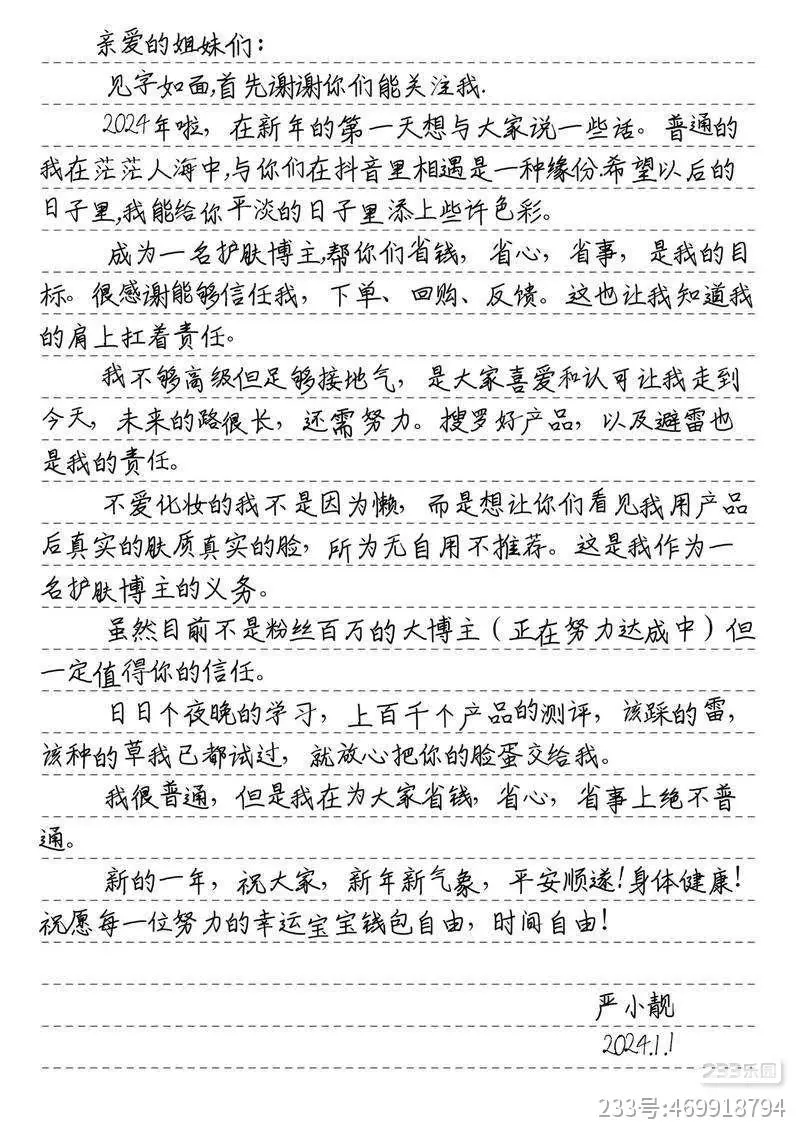 亲爱的姐妹们：
见字如面,首先谢谢你们能关注我.
2024年啦，在新年的第一天想与大家说一些话。普通的
我在茫茫人海中,与你们在抖音里相遇是一种缘份.希望以后的
日子里,我能给你平淡的日子里添上些许色彩。
成为一名护肤博主,帮你们省钱，省心，省事，是我的目
标。很感谢能够信任我，下单、回购、反馈。这也让我知道我
的肩上扛着责任。
我不够高级但足够接地气，是大家喜爱和认可让我走到
今天，未来的路很长，还需努力。搜罗好产品，以及避雷也
是我的责任。
不爱化妆的我不是因为懒，而是想让你们看见我用产品
后真实的肤质真实的脸，所为无自用不推荐。这是我作为一
名护肤博主的义务。
虽然目前不是粉丝百万的大博主（正在努力达成中）但
一定值得你的信任。
日日个夜晚的学习，上百千个产品的测评，该踩的雷，
该种的草我已都试过，就放心把你的脸蛋交给我。
我很普通，但是我在为大家省钱，省心，省事上绝不普
通。
新的一年，祝大家，新年新气象，平安顺遂！身体健康！
祝愿每一位努力的幸运宝宝钱包自由，时间自由！
严小靓
2024.1.1
233乐园
233号:469918794